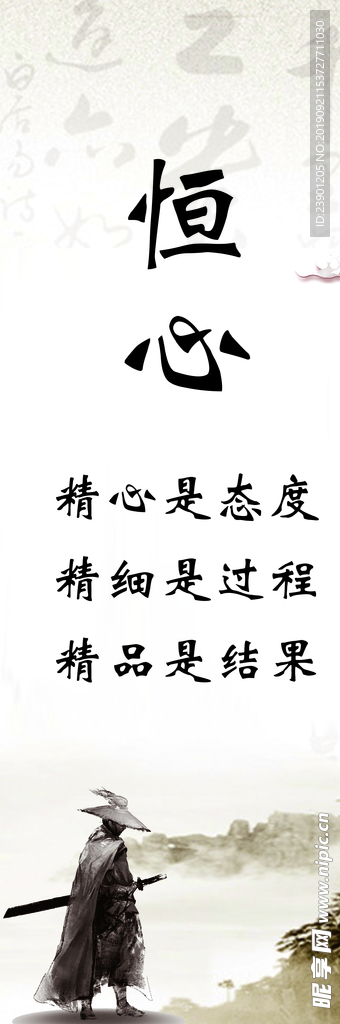 恒
心
精心是态度
精细是过程
精品是结果
ID:23901205 NO:20190921153727711030
昵享网 www.nipic.cn